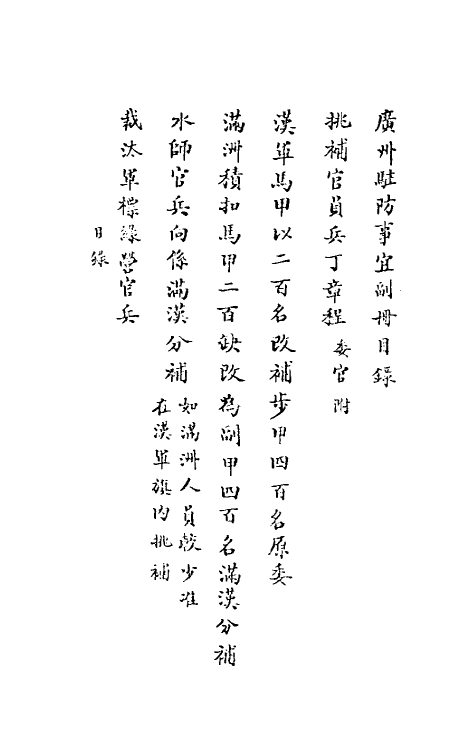 廣州駐防事宜副冊目錄
挑補官員兵丁章程 委官附
漢軍馬甲以二百名改補步甲四百名原委
滿洲積扣馬甲二百缺改為副甲四百名滿漢分補
水師官兵向係滿漢分補 如滿洲人員較少准
在漢軍旗內挑補
裁汰軍標綠營官兵
目錄